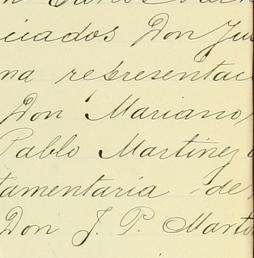 ciados Don Ju
na representac
Don Mariano
Pablo Martinez
tamentaria de
Don J. P. Marto